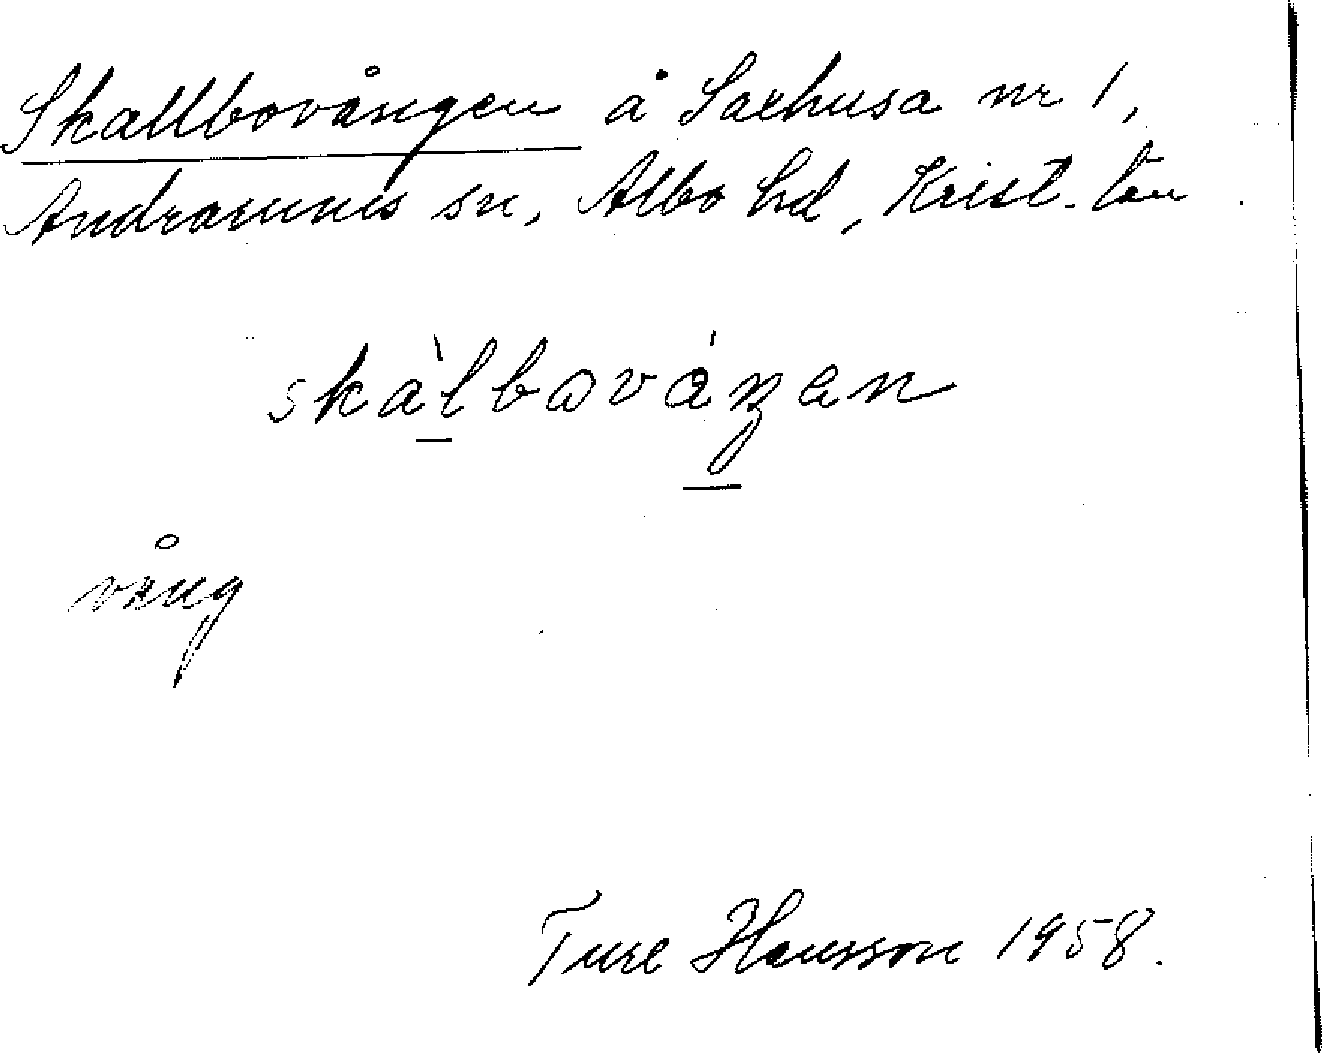 Skallbovången å Saxhusa nr 1,
Andrarums sn, Albo hd, Krist. län.
skàlbováŋen
vång
Ture Hansson 1958.